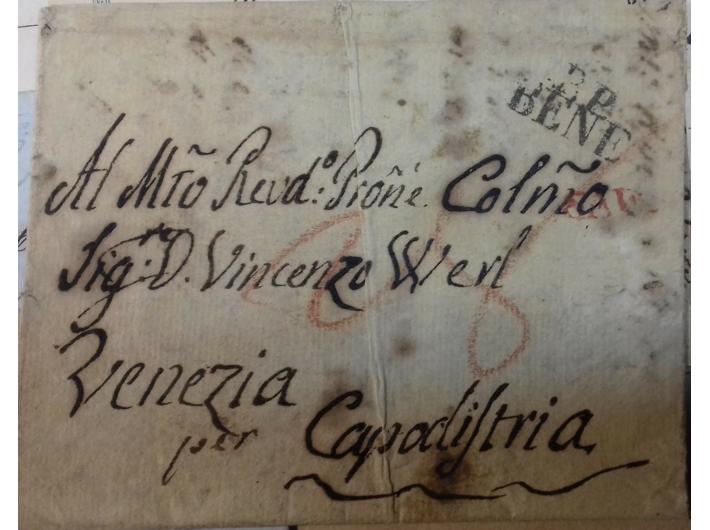 P.P.
BENE
Al Mtõ Revdº: Proñe. Colm̃o
Sigre: D. Vincenzo Werl
Venezia
per Capodistria